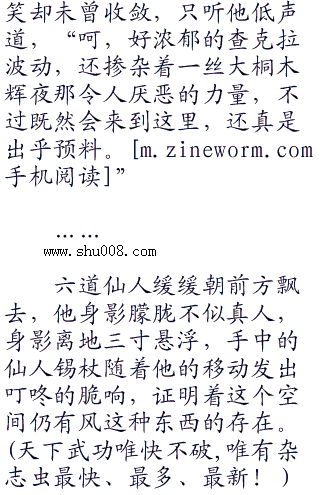 笑却未曾收敛，只听他低声
道，“呵，好浓郁的查克拉
波动，还掺杂着一丝大桐木
辉夜那令人厌恶的力量，不
过既然会来到这里，还真是
出乎预料。[m.zineworm.com
手机阅读]”
……
www.shu008.com
六道仙人缓缓朝前方飘
去，他身影朦胧不似真人，
身影离地三寸悬浮，手中的
仙人锡杖随着他的移动发出
叮咚的脆响，证明着这个空
间仍有风这种东西的存在。
(天下武功唯快不破,唯有杂
志虫最快、最多、最新！)